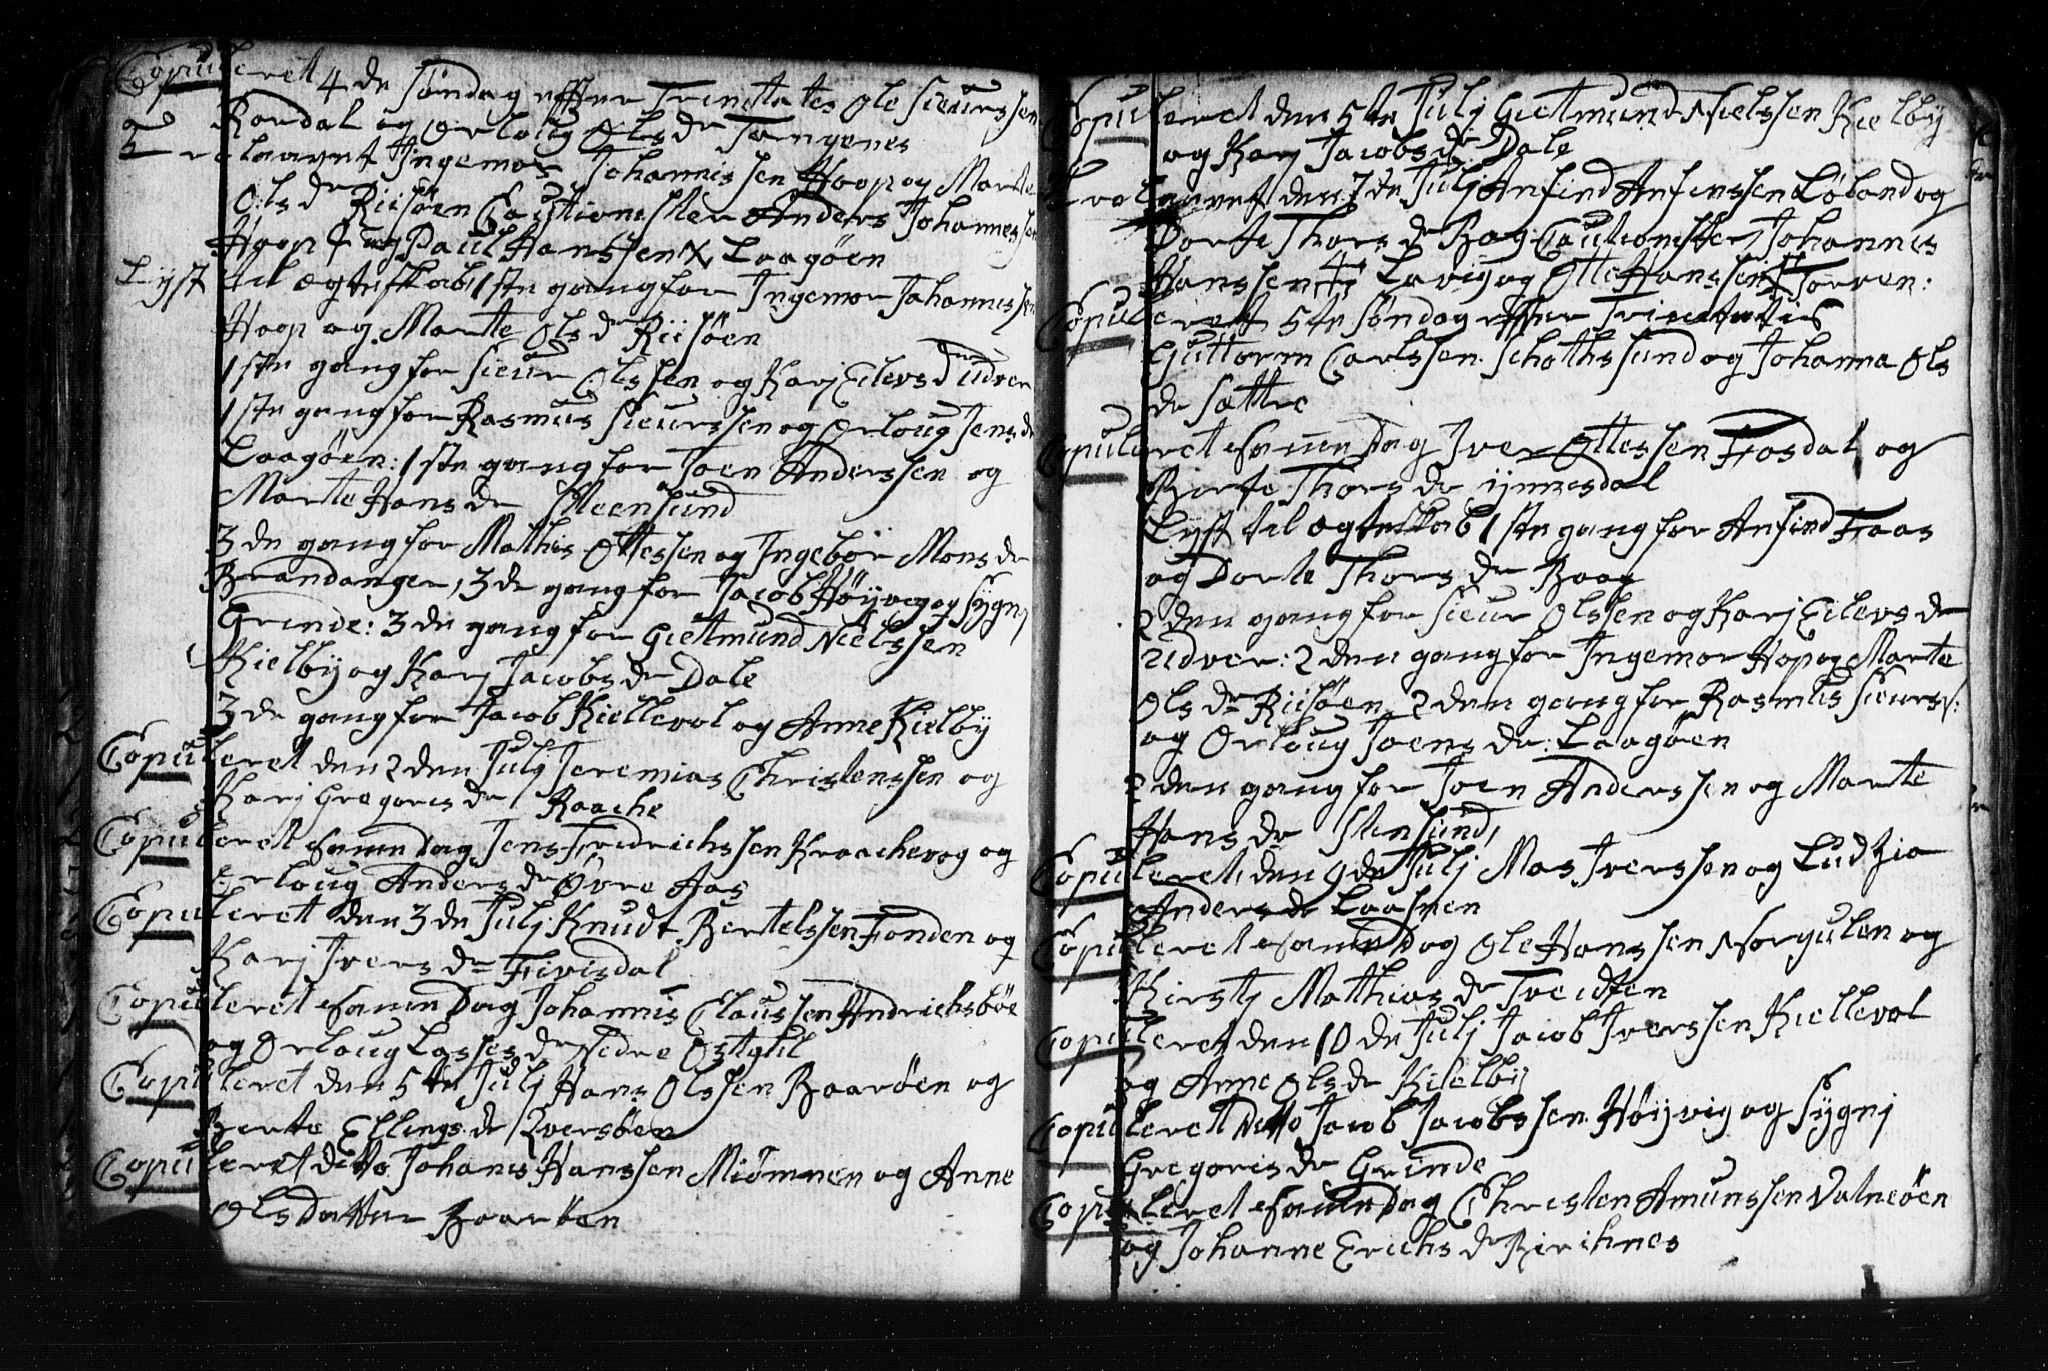 Copuleret 4de Søndag effter Trinitatis Ole Sieurssen
Rørdal og Orloug Olsdr Tangenes
Trolaavet Ingemor Johannissen Hoop og Marte
Olsdr Riisøen Cautionister Anders Johannessen
Hoop og Paul Hanssen Laagøen
Lyst til ægteskab 1ste gang for Ingemor Johannissen
Hoop og Marte Olsdr Riisøen
1ste gang for Sieur Olssen og Karj Eilersdr Udver
1ste gang for Rasmus Sieurssen og Orloug Jensdr
Laagøen: 1ste gang for Joen Anderssen og
Marte Hansdr Steensund
3de gang for Mathis Ottessen og Ingebor Monsdr
Brandanger, 3de gang for Jacob Høyvig og Sygnj
Grinde: 3de gang for Gietmund Nielssen
Kielby og Karj Jacobsdr Dale
3de gang for Jacob Kiellevol og Anne Kielby
Copuleret den 2den Julj Jeremias Christenssen og
Karj Gregorisdr Raache
Copuleret samme Dag Jens Fredrichssen Kraachevog og
Orloug Andersdr Øvre Aas
Copuleret den 3de Julj Knudt Bertelssen Fonden og
Karj Iversdr Fivisdal
Copuleret samme Dag Johannis Claussen Andrichsbøe
og Orloug Lassesdr Nedre Ostgul
Copuleret den 5te Julj Hans Olssen Baarøen og
Berte Ellingsdr Qversøen
Copuleret ditto Johanis Hanssen Miømnen og Anne
Olsdatter Baarøen
Copuleret den 5te Julj Gietmund Nielssen Kielby
og Karj Jacobsdr Dale
Trolaavet den 7de Julj Anfind Anfinssen Løland og
Dorte Thorsdr Bog: Cautionister Johannis
Hanssen Lavig og Otte Hanssen Torven:
Copuleret 5te Søndag effter Trinitatis
Guttorm Carlssen Schothssund og Johanna Ols
dr Sættre
Copuleret samme Dag Iver Ottessen Fosdal og
Birte Thorsdr Ynnesdal
Lyst til ægteskab 1ste gang for Anfind Faas
og Dorte Thorsdr Boog
2den gang for Sieur Olssen og Karj Eilersdr
Udver: 2den gang for Ingemor Hop og Marte
Olsdr Riisøen 2den gang for Rasmus Sieurs:
og Orloug Joensdr: Laagøen
2den gang for Joen Anderssen og Marte
Hansdr Stensund,
Copuleret den 9de Julj Mas Iverssen og Ludzia
Andersdr Laasnen
Copuleret samme Dag Ole Hanssen Norgulen og
Kirstj Mathiasdr Tveidten
Copuleret den 10de Julj Jacob Iverssen Kiellevol
og Anne Olsdr Kielby
Copuleret ditto Jacob Jacobssen Høyvig og Sygnj
Gregorisdr Grinde
Copuleret samme Dag Christen Amunssen Valneøen
og Johanne Erichsdr Birchnes